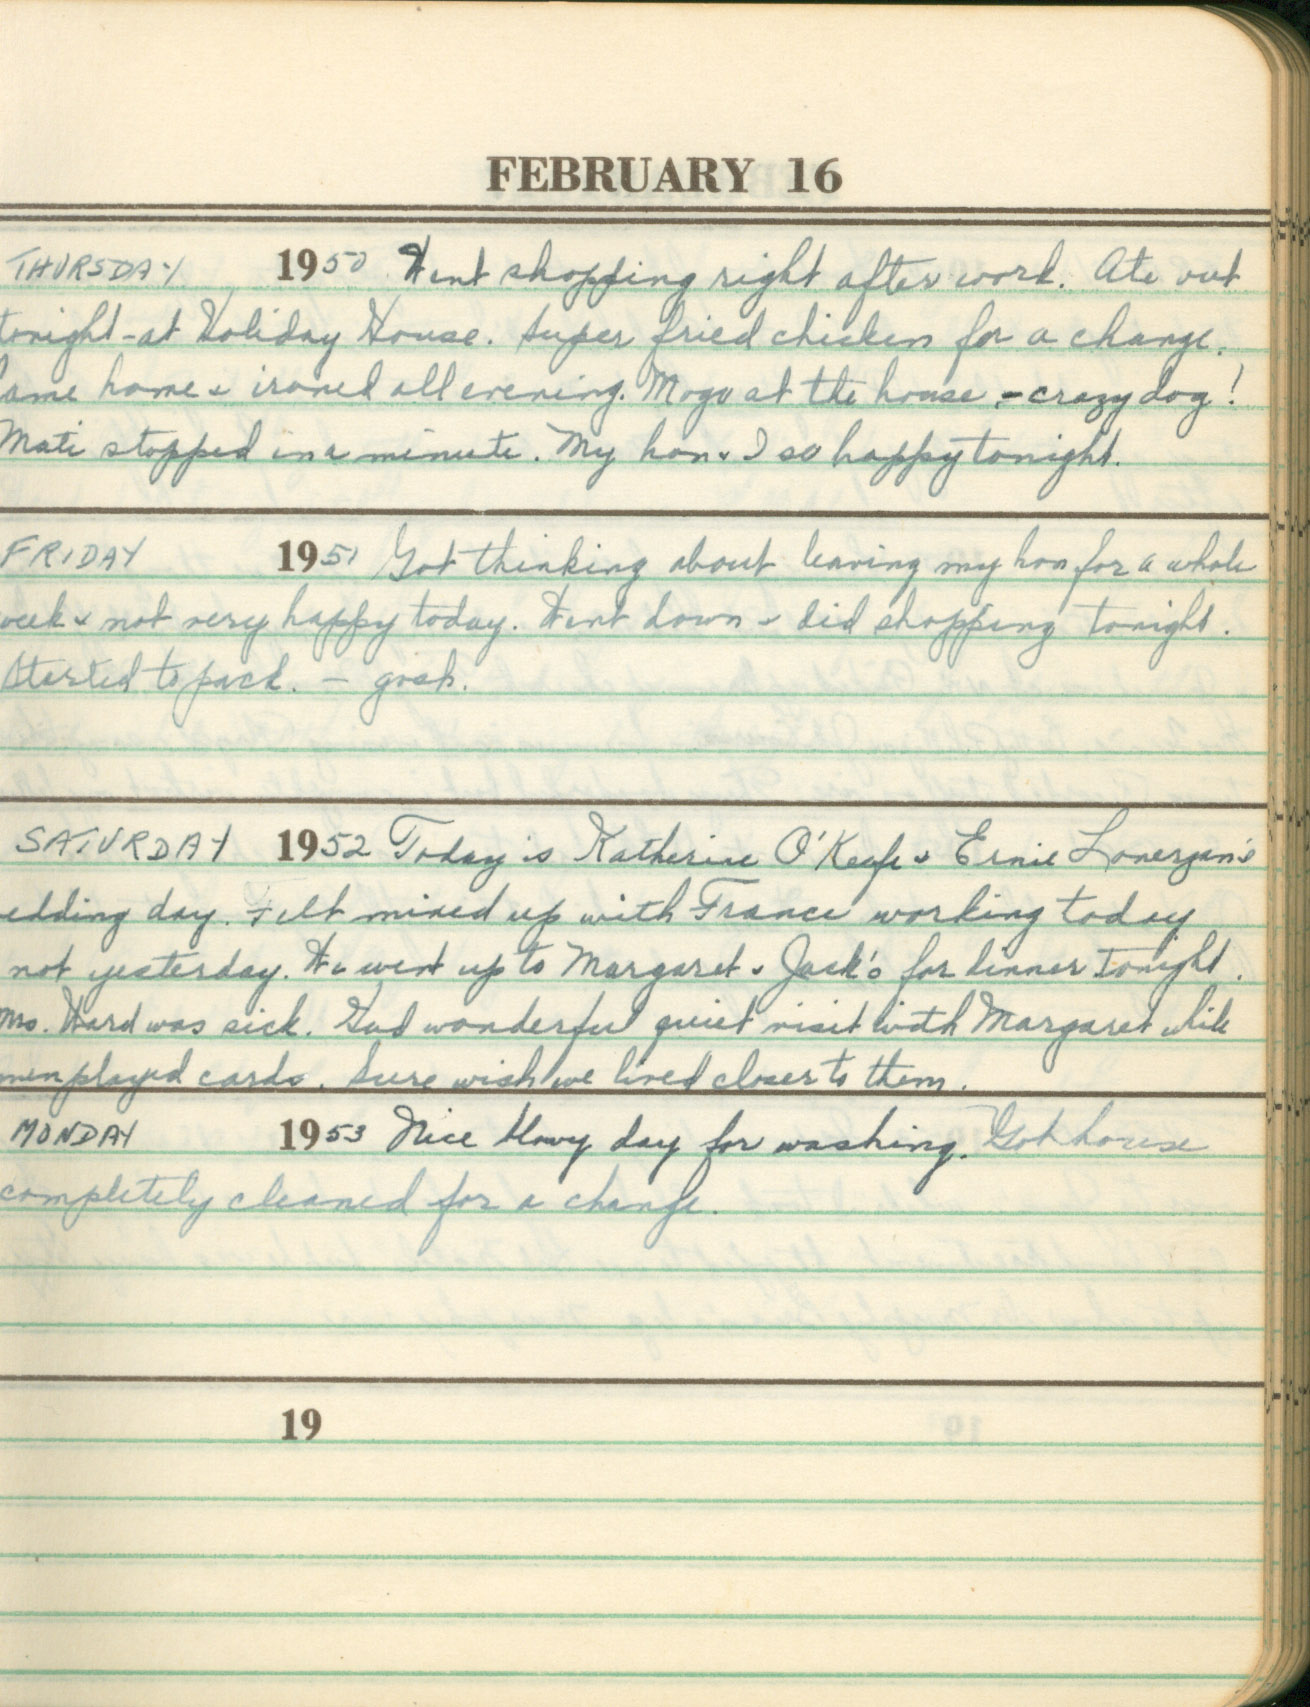 FEBRUARY 16
THURSDAY 1950 Went shopping right after work. Ate out
tonight - at Holiday House. Super fried chicken for a change.
ame home & ironed all evening. Mogo at the house - crazy dog!
Mati stopped in a minute. My hon & I so happy tonight.
FRIDAY 1951 Got thinking about leaving my hon for a whole
week & not very happy today. Went down & did shopping tonight.
Started to pack. - gosh.
SATURDAY 1952 Today is Katherine O'Keefe & Ernie Lonergan's
edding day. Felt mixed up with France working today
not yesterday. We went up to Margaret & Jack's for dinner tonight.
Mrs. Ward was sick. Had wonderful quiet visit with Margaret while
men played cards. Sure wish we lived closer to them.
MONDAY 1953 Nice blowy day for washing. Got house
completely cleaned for a change.
19